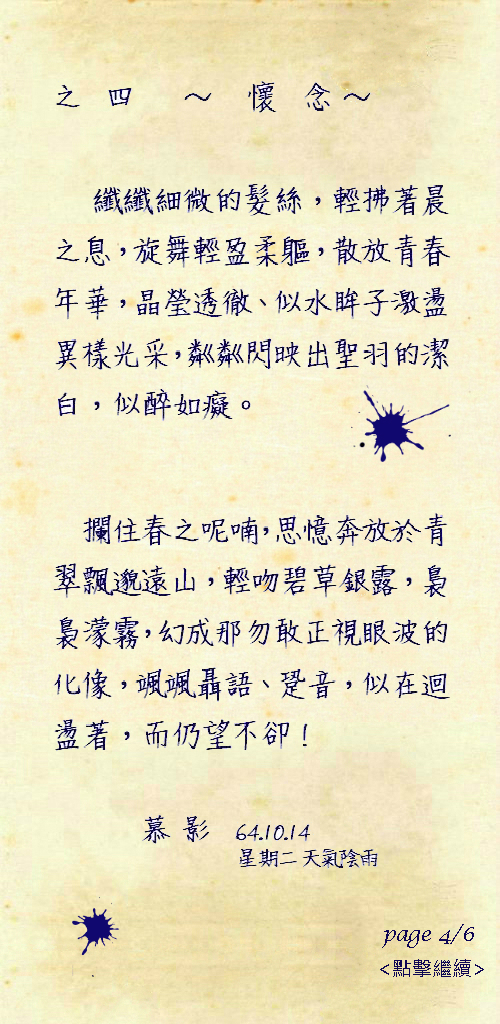 之四 ～ 懷 念～
纖纖細微的髮絲，輕拂著晨
之息，旋舞輕盈柔軀，散放青春
年華，晶瑩透徹、似水眸子激盪
異樣光采，粼粼閃映出聖羽的潔
白，似醉如癡。
攔住春之呢喃，思憶奔放於青
翠飄邈遠山，輕吻碧草銀露，裊
裊濛霧，幻成那勿敢正視眼波的
化像，颯颯聶語、跫音，似在迴
盪著，而仍望不卻！
慕 影 64.10.14
星期二 天氣陰雨
page 4/6
<點擊繼續>